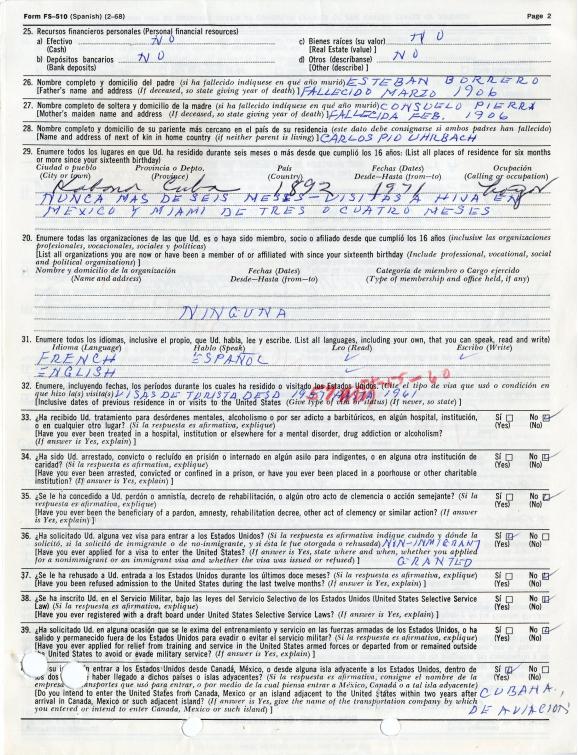 Form FS-510 (Spanish) (2-68) Page 2
25. Recursos financieros personales (Personal financial resources)
a) Efectivo NO c) Bienes raíces (su valor) NO
(Cash) [Real Estate (value) ]
b) Depósitos bancarios NO d) Otros (descríbanse) NO
(Bank deposits) [Other (describe) ]
26. Nombre completo y domicilio del padre (si ha fallecido indíquese en qué año murió) ESTEBAN BORRERO
[Father's name and address (If deceased, so state giving year of death) ] FALLECIDO MARZO 1906
27. Nombre completo de soltera y domicilio de la madre (si ha fallecido indíquese en qué año murió) CONSUELO PIERRA
[Mother's maiden name and address (If deceased, so state giving year of death) ] FALLECIDA FEB. 1906
28. Nombre completo y domicilio de su pariente más cercano en el país de su residencia (este dato debe consignarse si ambos padres han fallecido)
[Name and address of next of kin in home country (if neither parent is living) ] CARLOS PIO UHRBACH
29. Enumere todos los lugares en que Ud. ha residido durante seis meses o más desde que cumplió los 16 años: (List all places of residence for six months
or more since your sixteenth birthday)
Ciudad o pueblo Provincia País Fechas (Dates) Ocupación
(City or town) (Province) (Country) Desde—Hasta (from—to) (Calling or occupation)
Habana Cuba 1892 1971 Hogar
NUNCA MAS DE SEIS MESES - VISITAS A HIJA EN
MEXICO Y MIAMI DE TRES O CUATRO MESES
20. Enumere todas las organizaciones de las que Ud. es o haya sido miembro, socio o afiliado desde que cumplió los 16 años (inclusive las organizaciones
profesionales, vocacionales, sociales y políticas)
[List all organizations you are now or have been a member of or affiliated with since your sixteenth birthday (Include professional, vocational, social
and political organizations) ]
Nombre y domicilio de la organización Fechas (Dates) Categoría de miembro o Cargo ejercido
(Name and address) Desde—Hasta (from—to) (Type of membership and office held, if any)
NINGUNA
31. Enumere todos los idiomas, inclusive el propio, que Ud. habla, lee y escribe. (List all languages, including your own, that you can speak, read and write)
Idioma (Language) Hablo (Speak) Leo (Read) Escribo (Write)
FRENCH ESPAÑOL
ENGLISH
32. Enumere, incluyendo fechas, los períodos durante los cuales ha residido o visitado los Estados Unidos. Cite el tipo de visa que usó o condición en
que hizo la(s) visita(s) VISAS DE TURISTA DESD 1961
[Inclusive dates of previous residence in or visits to the United States (Give type of visa or status) (If never, so state) ]
33. ¿Ha recibido Ud. tratamiento para desórdenes mentales, alcoholismo o por ser adicto a barbitúricos, en algún hospital, institución, Sí No
o en cualquier otro lugar? (Si la respuesta es afirmativa, explique) (Yes) (No)
[Have you been treated in a hospital, institution or elsewhere for a mental disorder, drug addiction or alcoholism?
(If answer is Yes, explain) ]
34. ¿Ha sido Ud. arrestado, convicto o recluído en prisión o internado en algún asilo para indigentes, o en alguna otra institución de Sí No
caridad? (Si la respuesta es afirmativa, explique) (Yes) (No)
[Have you ever been arrested, convicted or confined in a prison, or have you ever been placed in a poorhouse or other charitable
institution? (If answer is Yes, explain) ]
35. ¿Se le ha concedido a Ud. perdón o amnistía, decreto de rehabilitación, o algún otro acto de clemencia o acción semejante? (Si la Sí No
respuesta es afirmativa, explique) (Yes) (No)
[Have you ever been the beneficiary of a pardon, amnesty, rehabilitation decree, other act of clemency or similar action? (If answer
is Yes, explain) ]
36. ¿Ha solicitado Ud. alguna vez visa para entrar a los Estados Unidos? (Si la respuesta es afirmativa indique cuándo y dónde la Sí No
solicitó, si la solicitó de inmigrante o de no-inmigrante, y si ésta le fue otorgada o rehusada) NON-INMIGRANT (Yes) (No)
[Have you ever applied for a visa to enter the United States? (If answer is Yes, state where and when, whether you applied
for a nonimmigrant or an immigrant visa and whether the visa was issued or refused) ] GRANTED
37. ¿Se le ha rehusado a Ud. entrada a los Estados Unidos durante los últimos doce meses? (Si la respuesta es afirmativa, explique) Sí No
[Have you been refused admission to the United States during the last twelve months? (If answer is Yes, explain) ] (Yes) (No)
38. ¿Se ha inscrito Ud. en el Servicio Militar, bajo las leyes del Servicio Selectivo de los Estados Unidos (United States Selective Service Sí No
Law) (Si la respuesta es afirmativa, explique) (Yes) (No)
[Have you ever registered with a draft board under United States Selective Service Laws? (If answer is Yes, explain) ]
39. ¿Ha solicitado Ud. en alguna ocasión que se le exima del entrenamiento y servicio en las fuerzas armadas de los Estados Unidos, o ha Sí No
salido y permanecido fuera de los Estados Unidos para evadir o evitar el servicio militar? (Si la respuesta es afirmativa, explique) (Yes) (No)
[Have you ever applied for relief from training and service in the United States armed forces or departed from or remained outside
United States to avoid or evade military service? (If answer is Yes, explain) ]
su intención entrar a los Estados Unidos desde Canadá, México, o desde alguna isla adyacente a los Estados Unidos, dentro de Sí No
los dos haber llegado a dichos países o islas adyacentes? (Si la respuesta es afirmativa, consigne el nombre de la (Yes) (No)
empresa transportes que usó para entrar, o por medio de la cual piensa entrar a México, Canadá o a tal isla adyacente)
[Do you intend to enter the United States from Canada, Mexico or an island adjacent to the United States within two years after CUBANA,
arrival in Canada, Mexico or such adjacent island? (If answer is Yes, give the name of the transportation company by which
you entered or intend to enter Canada, Mexico or such island) ] DE AVIACION